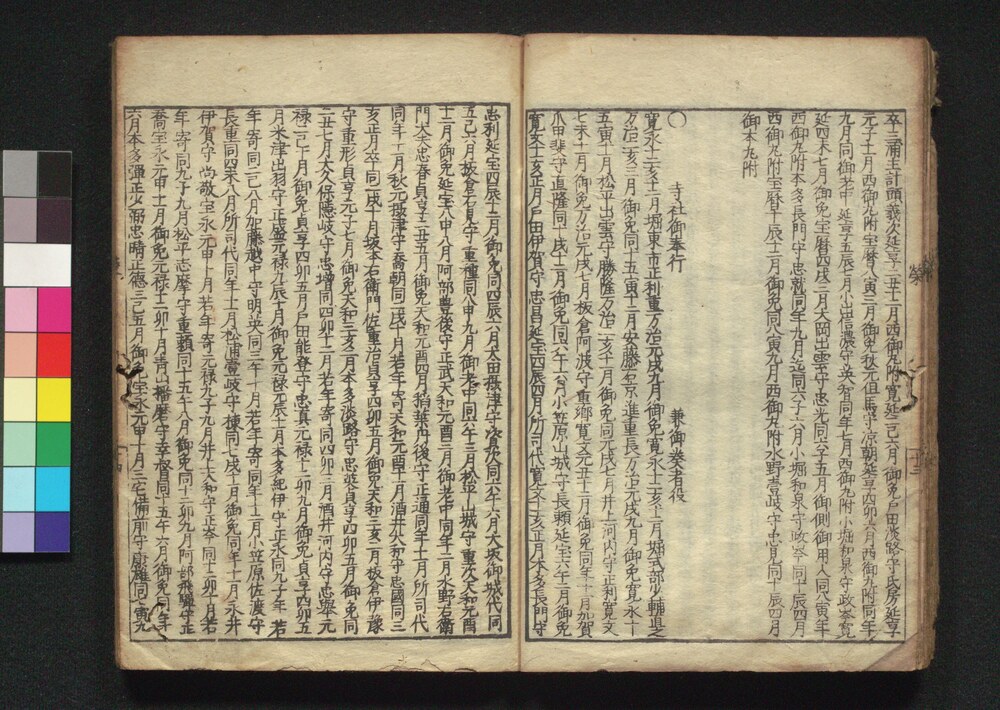 卒三浦主計頭義次延享二丑十二月西御丸附寛延二己六月御免戸田淡路守氏房延享
元子十一月西御丸附宝暦八寅三月御免秋元但馬守凉朝延享四卯六月西御丸附同年
九月同御老中 延享五辰七月小出信濃守英智同年七月西御丸附小堀和泉守政峯寛
延四未七月御免宝暦四戌三月大岡出雲守忠光同六子五月御側御用人同八寅年
西御丸附本多長門守忠就同年九月迄同六子六月小堀和泉守政峯同十辰四月
西御丸附宝暦十辰三月御免同八寅九月西御丸附水野壹岐守忠見同十辰四月
御本丸附
寺社御奉行 兼御奏者役
〇寛永十二亥十一月堀東市正利重万治元戌九月御免寛永十二亥十一月堀式部少輔直之
万治二亥三月御免同十五寅十二月安藤右京進重長万治元戌九月御免寛永十
五寅十一月松平出雲守勝隆万治二亥十一月御免同元戌七月井上河内守正利寛文
七未十二月御免万治元戌七月板倉阿波守重郷寛文元丑十一月御免同年十一月加賀
爪甲斐守直隆同十戌十二月御免同六午七月小笠原山城守長頼延宝六午二月御免
寛文十一亥正月戸田伊賀守忠昌延宝四辰四月所司代寛文十一亥正月本多長門守
忠利延宝四辰十二月御免同四辰六月太田摂津守資次同六午六月大坂御城代同
五巳六月板倉石見守重種同八申九月御老中同六午三月松平山城守重次天和元酉
十二月御免延宝八申八月阿部豊後守正武天和元酉三月御老中同年十一月水野右衛
門大夫忠春貞享二丑五月御免天和元酉四月稲葉丹後守正通同年十一月所司代
同年十一月秋元摂津守喬朝同二戌十月若年寄天和元酉十月酒井大和守忠國同三
亥正月卒同二戌十月坂本右衛門佐重治貞享四卯五月御免天和三亥二月板倉伊豫
守重形貞享元子七月御免天和三亥二月本多淡路守忠當貞享四卯五月御免同
二丑七月大久保隠岐守忠増同四卯十二月若年寄同四卯三月酒井河内守忠擧元
禄二巳十月御免貞享四卯五月戸田能登守忠真元禄十二卯九月御免貞享四卯五
月米津出羽守正盛元禄元辰十月御免元禄元辰十一月本多紀伊守正永同九子年 若
年寄同二巳八月加藤越中守明英同三午十月若年寄同年十二月小笠原佐渡守
長重同四未八月所司代同年十一月松浦壹岐守棟同七戌十一月御免同年十一月永井
伊賀守尚敬宝永元申十月若年寄元禄九子九月井上大和守正岑同十二卯十月若
年寄同九子九月松平志摩守重頼同十五午八月御免同十二卯九月阿部飛騨守正
喬宝永元申十一月御免元禄十二卯十月青山播磨守幸督同十五午六月御免同年
六月本多弾正少弼忠晴正徳三巳五月御免宝永元申十月三宅備前守康雄同七寅九